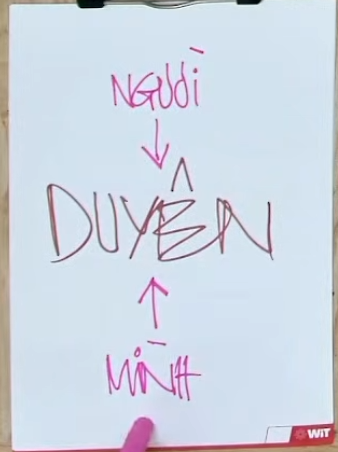 NGƯỜI
DUYÊN
MÌNH
WiT